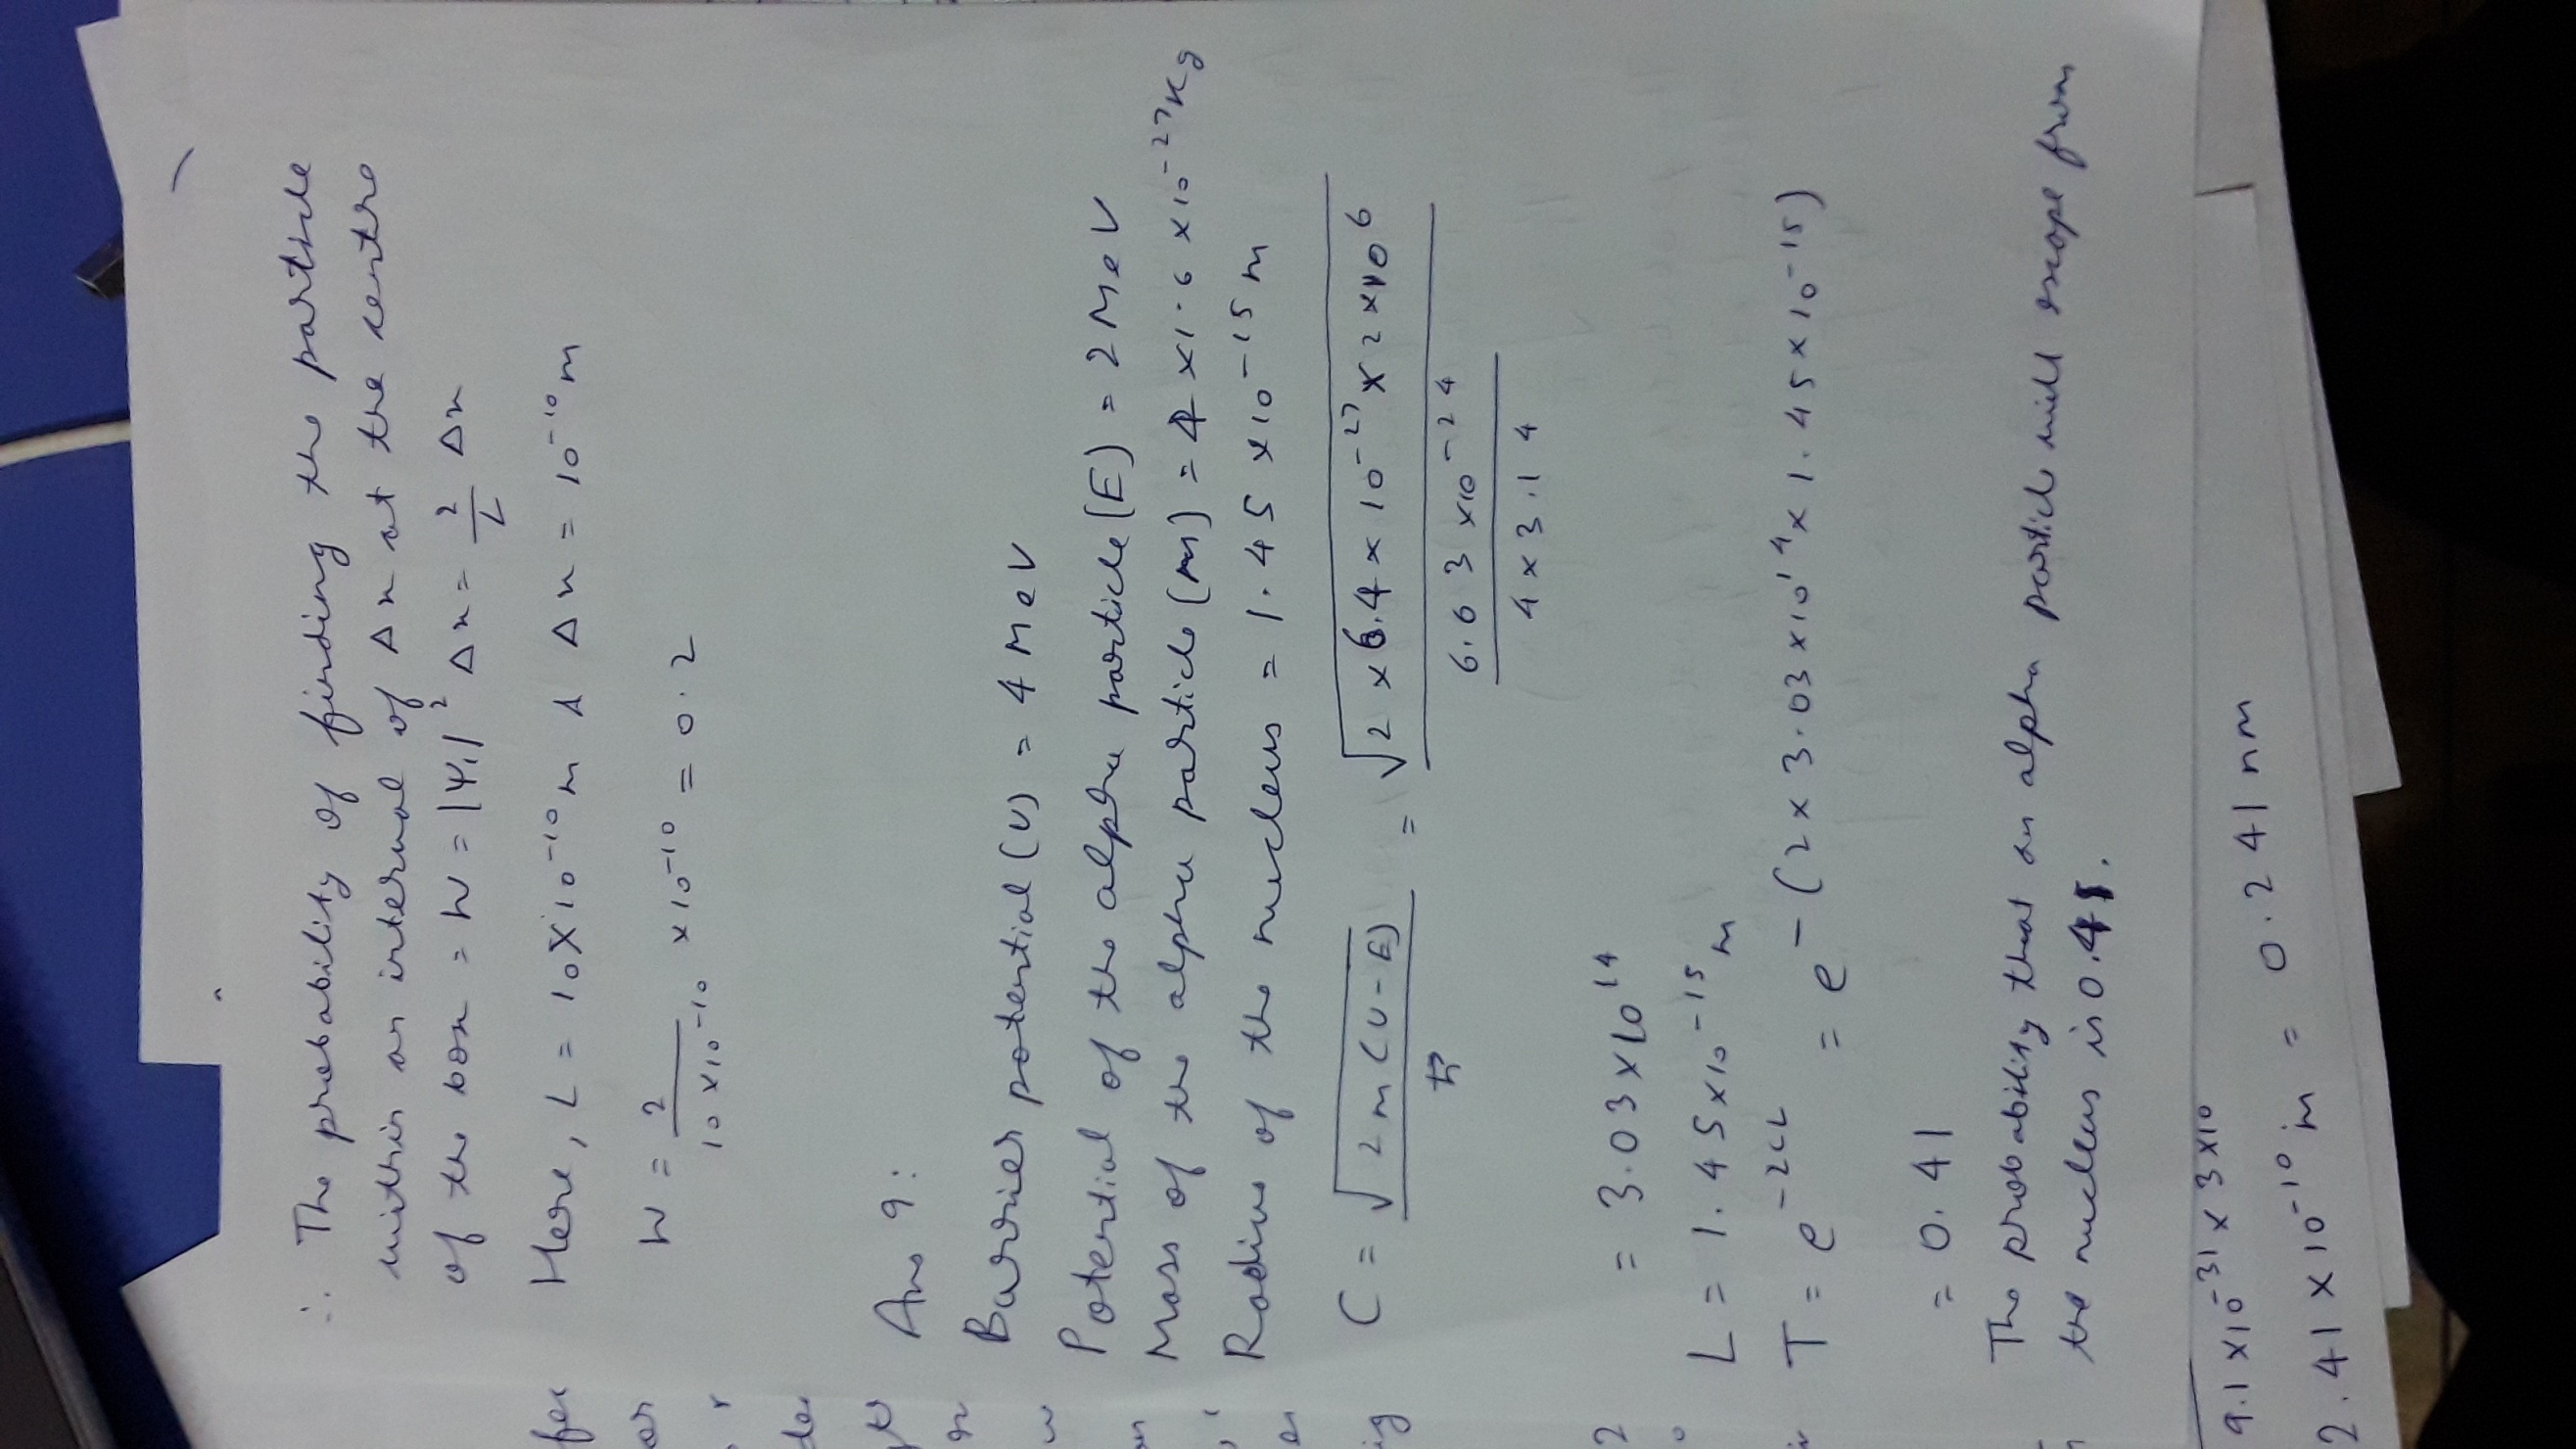 ∴ The probability of finding the particle
within an interval of Δx at the centre
of the box = W = |Ψ₁|² Δx = 2/L Δx
Here, L = 10×10⁻¹⁰ m & Δx = 10⁻¹⁰ m
W = 2/(10×10⁻¹⁰) × 10⁻¹⁰ = 0.2
Ans 9:
Barrier potential (U) = 4 MeV
Potential of the alpha particle (E) = 2 MeV
Mass of the alpha particle (m) = 4 × 1.6 × 10⁻²⁷ Kg
Radius of the nucleus = 1.45 × 10⁻¹⁵ m
C = √(2m(U-E))/ħ = √(2 × 6.4 × 10⁻²⁷ × 2 × 10⁶)/(6.63 × 10⁻²⁴/(4 × 3.14))
= 3.03 × 10¹⁴
L = 1.45 × 10⁻¹⁵ m
T = e⁻²ᶜᴸ = e⁻(2 × 3.03 × 10¹⁴ × 1.45 × 10⁻¹⁵)
= 0.41
The probability that an alpha particle will escape from
the nucleus is 0.41.
9.1 × 10⁻³¹ × 3 × 10
2.41 × 10⁻¹⁰ m = 0.241 nm